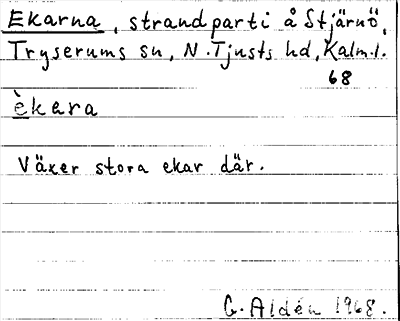 Ekarna, strandparti å Stjärnö,
Tryserums sn, N. Tjusts hd, Kalm. l.
68
èkara
Växer stora ekar där.
G. Aldén 1968.